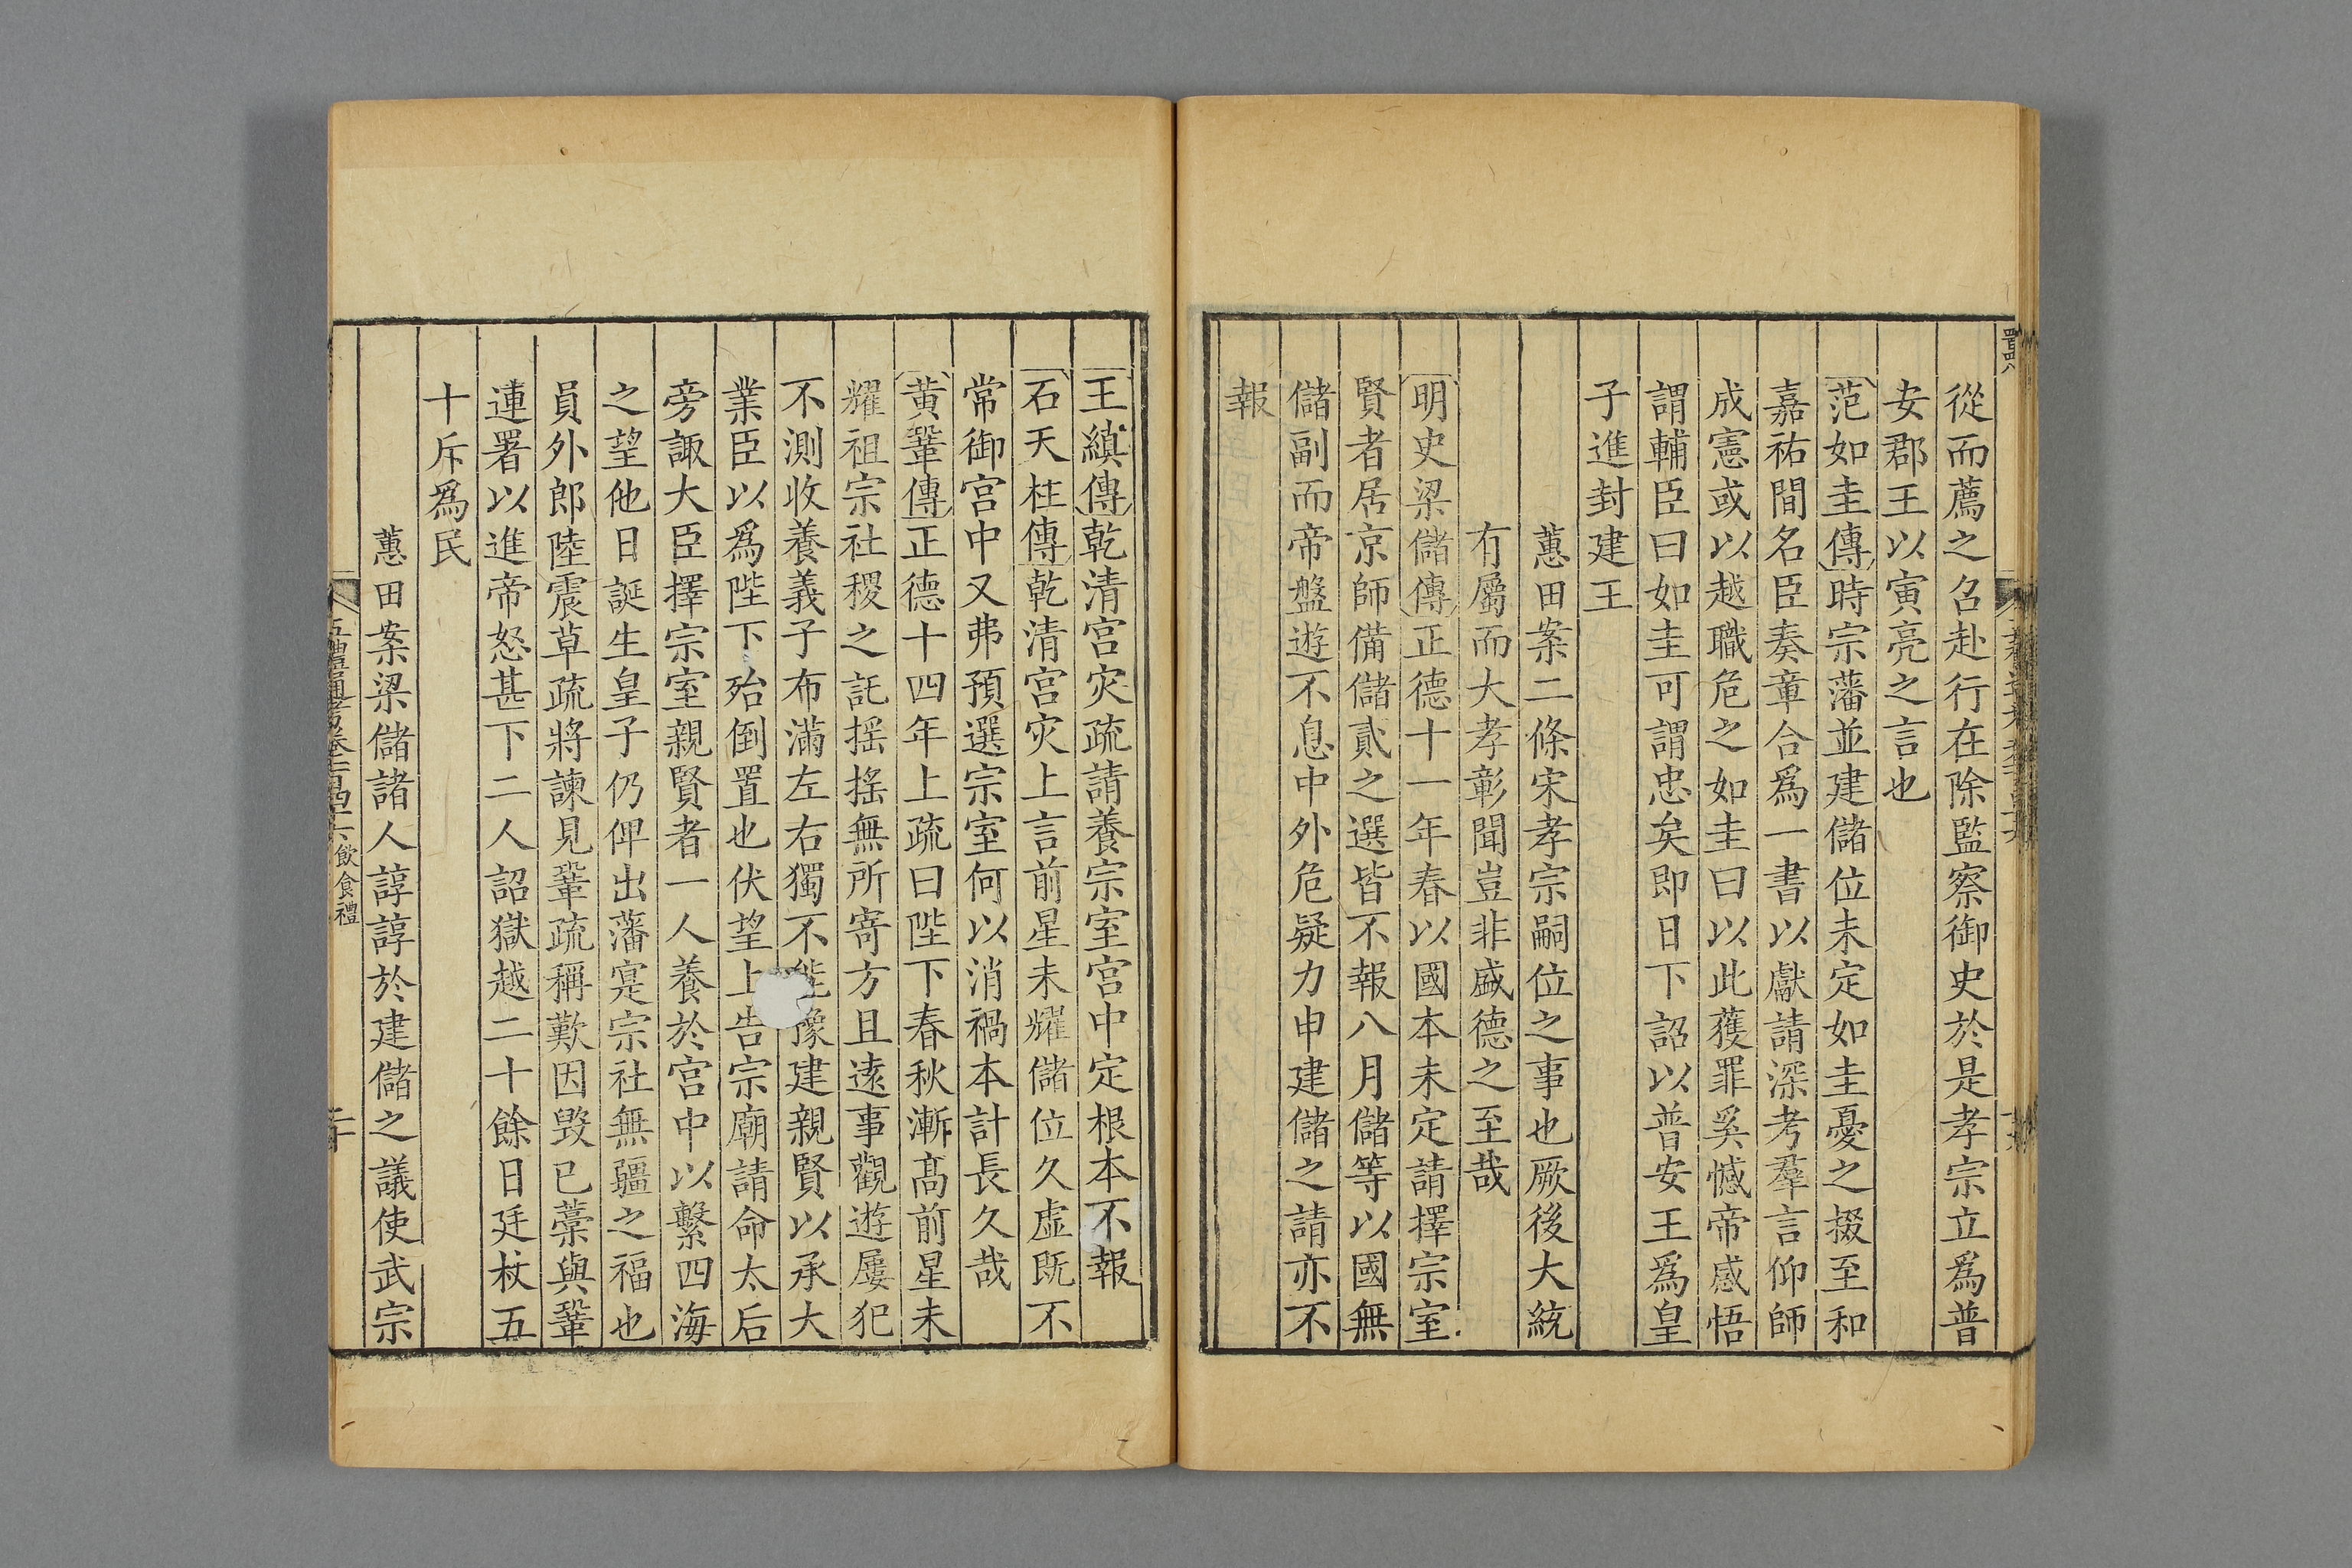 從而薦之召赴行在除監察御史於是孝宗立爲普
安郡王以寅亮之言也
范如圭傳時宗藩並建儲位未定如圭憂之掇至和
嘉祐間名臣奏章合爲一書以獻請深考羣言仰師
成憲或以越職危之如圭曰以此獲罪奚憾帝感悟
謂輔臣曰如圭可謂忠矣即日下詔以普安王爲皇
子進封建王
蕙田案二條宋孝宗嗣位之事也厥後大統
有屬而大孝彰聞豈非盛德之至哉
明史梁儲傳正德十一年春以國本未定請擇宗室
賢者居京師備儲貳之選皆不報八月儲等以國無
儲副而帝盤遊不息中外危疑力申建儲之請亦不
報
王縝傳乾清宮灾疏請養宗室宮中定根本不報
石天柱傳乾清宮灾上言前星未耀儲位久虛既不
常御宮中又弗預選宗室何以消禍本計長久哉
黃鞏傳正德十四年上疏曰陛下春秋漸高前星未
耀祖宗社稷之託搖搖無所寄方且遠事觀遊屢犯
不測收養義子布滿左右獨不能豫建親賢以承大
業臣以爲陛下殆倒置也伏望上告宗廟請命太后
旁諏大臣擇宗室親賢者一人養於宮中以繫四海
之望他日誕生皇子仍俾出藩寔宗社無疆之福也
員外郎陸震草疏將諫見鞏疏稱歎因毀已藁與鞏
連署以進帝怒甚下二人詔獄越二十餘日廷杖五
十斥爲民
蕙田案梁儲諸人諄諄於建儲之議使武宗
五禮通考卷一百四十六 飲食禮